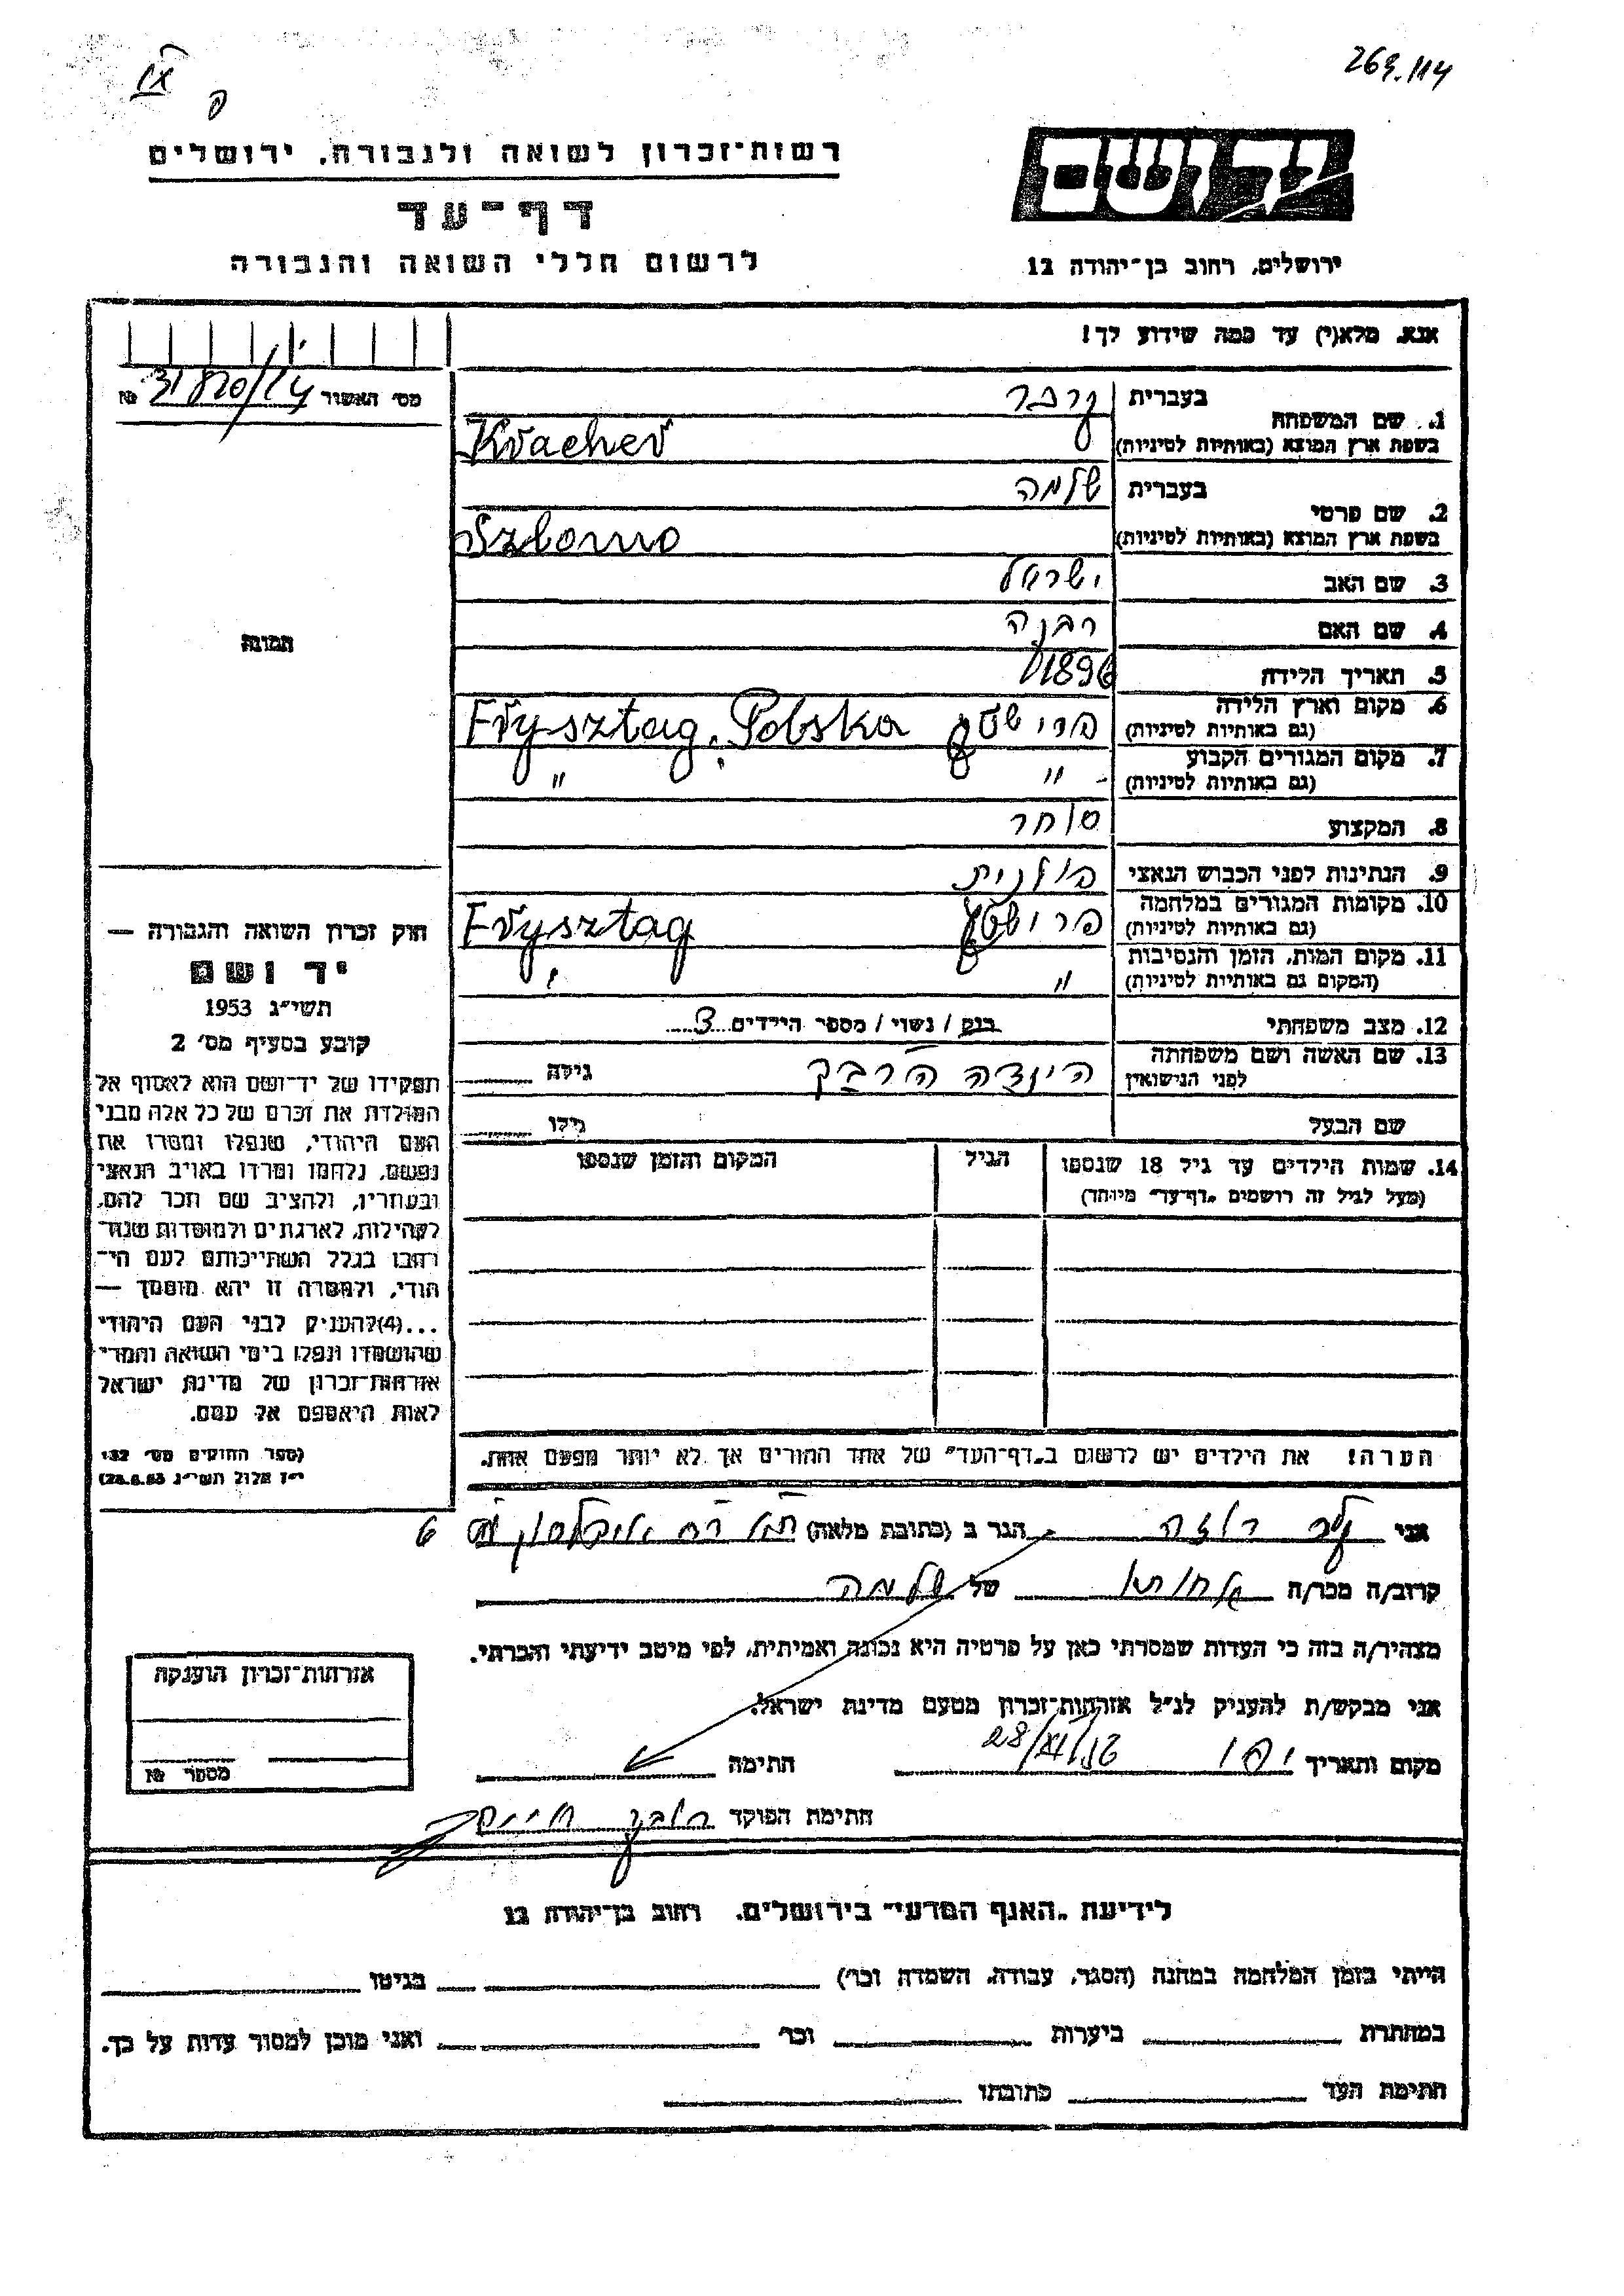 269.114
IX
ק
יד ושם
ירושלים, רחוב בן־יהודה 12
רשות־זכרון לשואה ולגבורה, ירושלים
דף־עד
לרשום חללי השואה והגבורה
אנא, מלא(י) עד כמה שידוע לך!
מס׳ האשור 31820/24 №
1. שם המשפחה בעברית
בשפת ארץ המוצא (באותיות לטיניות) Kracher
2. שם פרטי בעברית שלמה
בשפת ארץ המוצא (באותיות לטיניות) Szlomo
3. שם האב ישראל
4. שם האם
5. תאריך הלידה 1896
6. מקום וארץ הלידה (גם באותיות לטיניות) פרישטג Frysztag. Polska
7. מקום המגורים הקבוע (גם באותיות לטיניות) " "
8. המקצוע סוחר
9. הנתינות לפני הכבוש הנאצי פולנית
10. מקומות המגורים במלחמה (גם באותיות לטיניות) פרישטג Frysztag
11. מקום המות, הזמן והנסיבות (המקום גם באותיות לטיניות) "
12. מצב משפחתי רווק / נשוי / מספר הילדים 3
13. שם האשה ושם משפחתה לפני הנישואין הינדה גילה
שם הבעל גילו
14. שמות הילדים עד גיל 18 שנספו (מעל לגיל זה רושמים „דף־עד״ מיוחד) הגיל המקום והזמן שנספו
הערה! את הילדים יש לרשום ב„דף־העד״ של אחד ההורים אך לא יותר מפעם אחת.
תמונה
חוק זכרון השואה והגבורה —
יד ושם
תשי״ג 1953
קובע בסעיף מס׳ 2
תפקידו של יד־ושם הוא לאסוף אל
המולדת את זכרם של כל אלה מבני
העם היהודי, שנפלו ומסרו את
נפשם, נלחמו ומרדו באויב הנאצי
ובעוזריו, ולהציב שם וזכר להם,
לקהילות, לארגונים ולמוסדות שנח־
רבו בגלל השתייכותם לעם הי־
הודי, ולמטרה זו יהא מוסמך —
...(4)להעניק לבני העם היהודי
שהושמדו ונפלו בימי השואה והמרי
אזרחות־זכרון של מדינת ישראל
לאות היאספם אל עמם.
(ספר החוקים מס׳ 132,
י״ז אלול תשי״ג 28.8.53)
אני רוזה הגר ב (כתובת מלאה) 6
קרוב/ה מכר/ה אחותו של שלמה
מצהיר/ה בזה כי העדות שמסרתי כאן על פרטיה היא נכונה ואמיתית, לפי מיטב ידיעתי והכרתי.
אני מבקש/ת להעניק לנ״ל אזרחות־זכרון מטעם מדינת ישראל.
מקום ותאריך יפו 28/XI/56 חתימה
חתימת הפוקד
אזרחות־זכרון הוענקה
מספר №
לידיעת „האגף המדעי״ בירושלים, רחוב בן־יהודה 12
הייתי בזמן המלחמה במחנה (הסגר, עבודה, השמדה וכו׳) בגיטו
במחתרת ביערות וכו׳ ואני מוכן למסור עדות על כך.
חתימת העד כתובתו